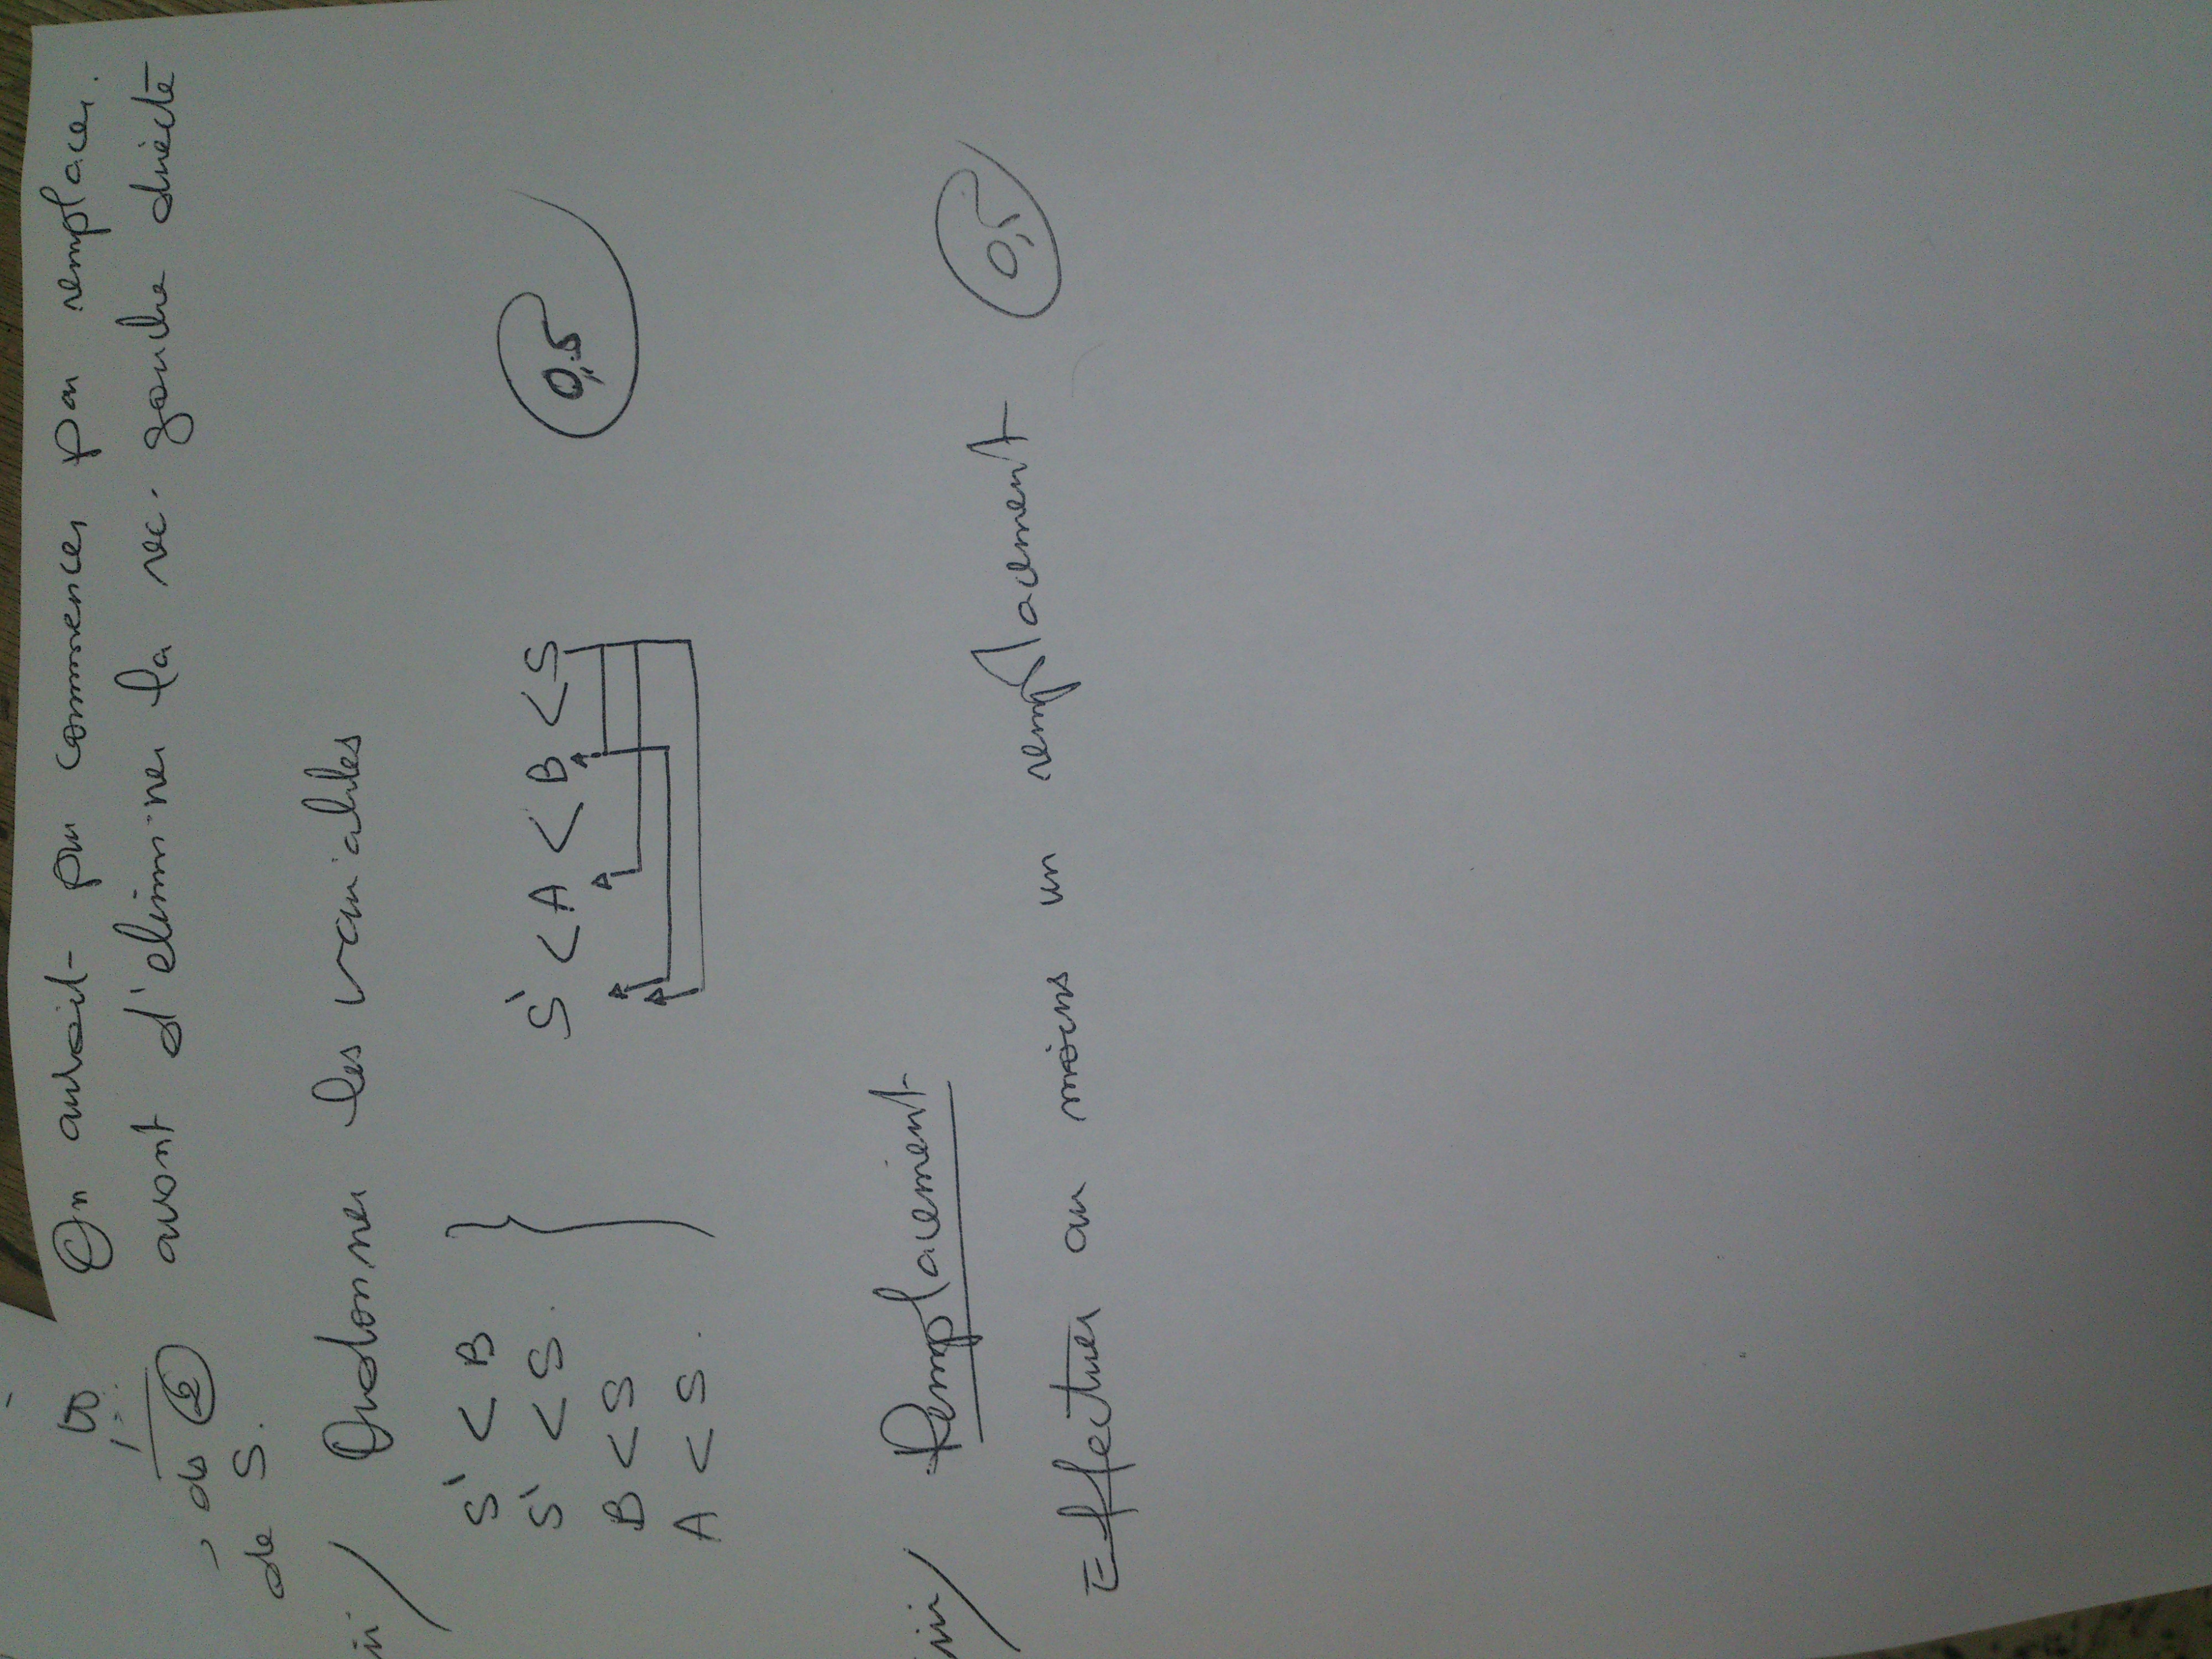 On auroit pu commencer par remplacer.
, ds ② avant d'eliminer la rec. gauche directe
de S.
ii/ Ordonner les variables
S' < B
S' < S.
B < S
A < S.
S' < A < B < S
0,5
iii/ Remplacement
Effectuer au moins un remplacement 0,5